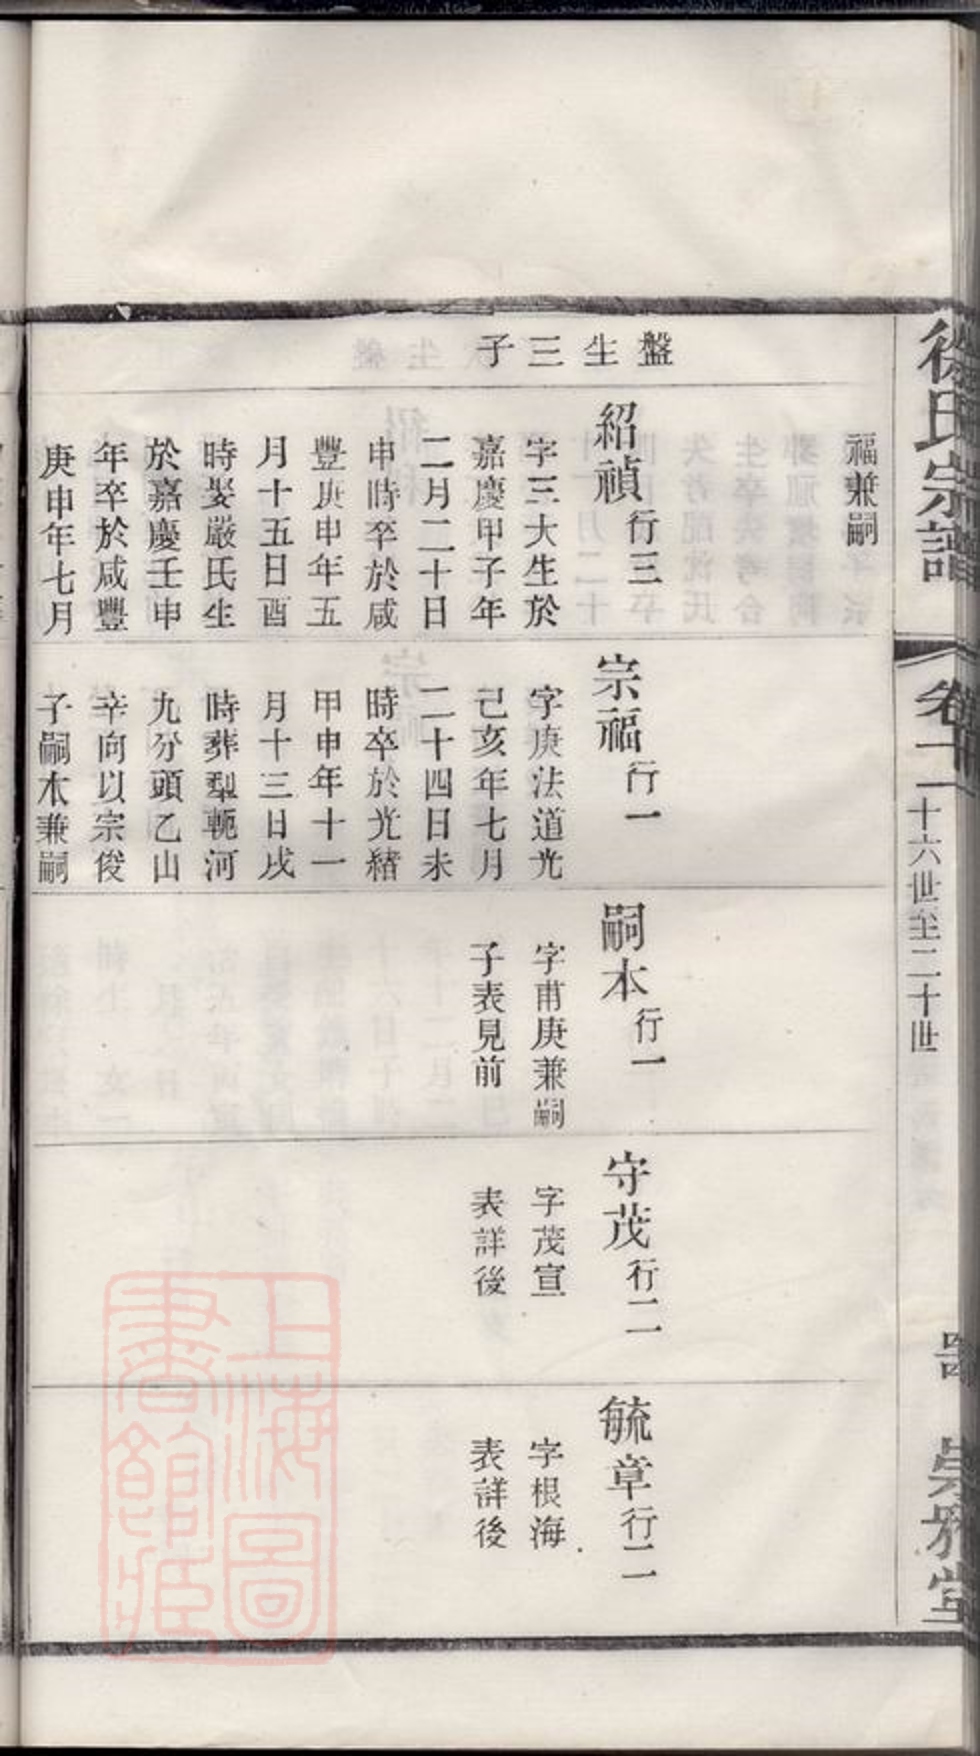 徐氏宗譜
卷十二
十六世至二十世
崇雅堂
福兼嗣
盤生三子
紹禎行三
字三大生於
嘉慶甲子年
二月二十日
申時卒於咸
豐庚申年五
月十五日酉
時娶嚴氏生
於嘉慶壬申
年卒於咸豐
庚申年七月
宗福行一
字庚法道光
己亥年七月
二十四日未
時卒於光緒
甲申年十一
月十三日戌
時葬犁軛河
九分頭乙山
辛向以宗俊
子嗣本兼嗣
嗣本行一
字甫庚兼嗣
子表見前
守茂行二
字茂宣
表詳後
毓章行二
字根海
表詳後
上海圖
書館藏